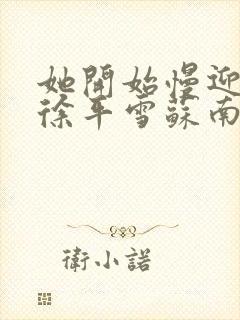 她開始慢迎
徐平雪蘇南
衛小諾